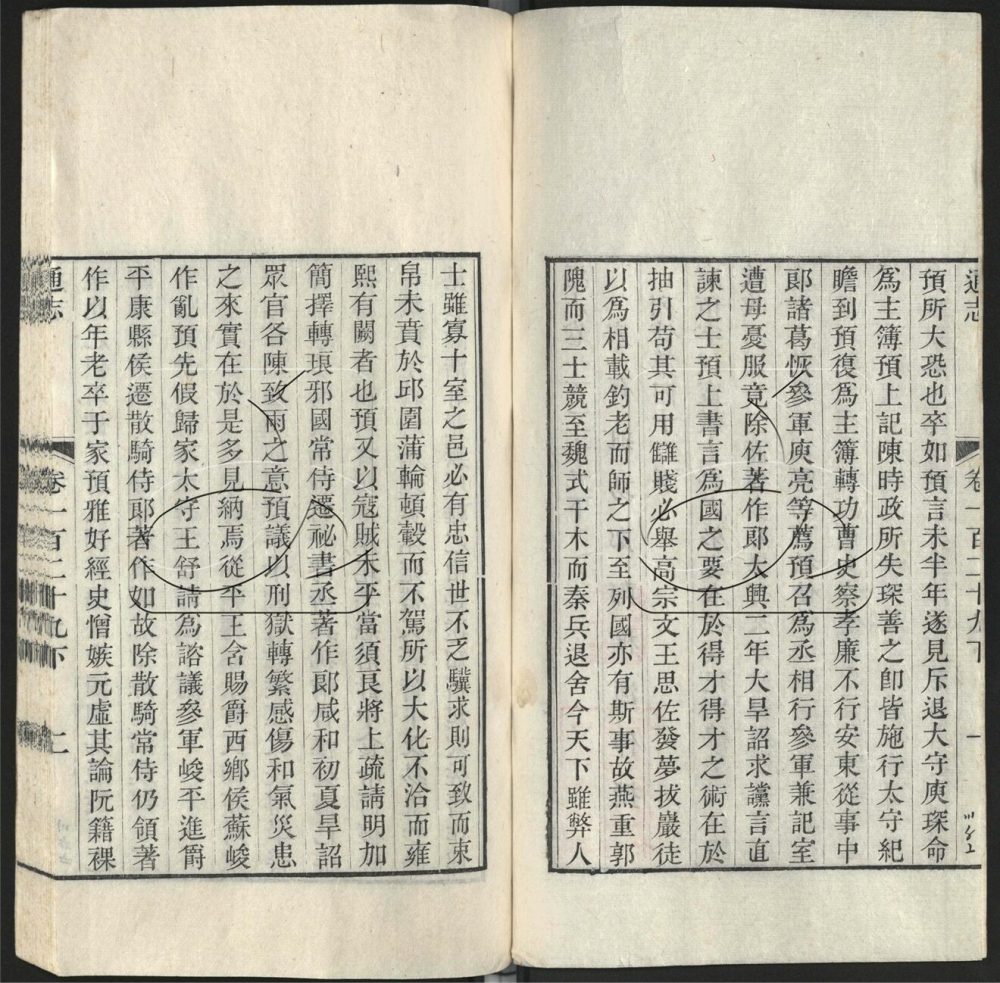 通志
卷一百二十九下
預所大恐也卒如預言未半年遂見斥退大守庾琛命
為主簿預上記陳時政所失琛善之卽皆施行太守紀
瞻到預復為主簿轉功曹史察孝廉不行安東從事中
郞諸葛恢參軍庾亮等薦預召為丞相行參軍兼記室
遭母憂服竟除佐著作郞太興二年大旱詔求讜言直
諫之士預上書言為國之要在於得才得才之術在於
抽引苟其可用讎賤必舉高宗文王思佐發夢拔巖徒
以為相載釣老而師之下至列國亦有斯事故燕重郭
隗而三士競至魏式干木而秦兵退舍今天下雖弊人
士雖寡十室之邑必有忠信世不乏驥求則可致而束
帛未賁於邱園蒲輪頓轂而不駕所以大化不洽而雍
熙有闕者也預又以寇賊未平當須良將上疏請明加
簡擇轉琅邪國常侍遷祕書丞著作郞咸和初夏旱詔
眾官各陳致雨之意預議以刑獄轉繁感傷和氣災患
之來實在於是多見納焉從平王含賜爵西鄉侯蘇峻
作亂預先假歸家太守王舒請為諮議參軍峻平進爵
平康縣侯遷散騎侍郞著作如故除散騎常侍仍領著
作以年老卒于家預雅好經史憎嫉元虛其論阮籍裸
通志
卷一百二十九下